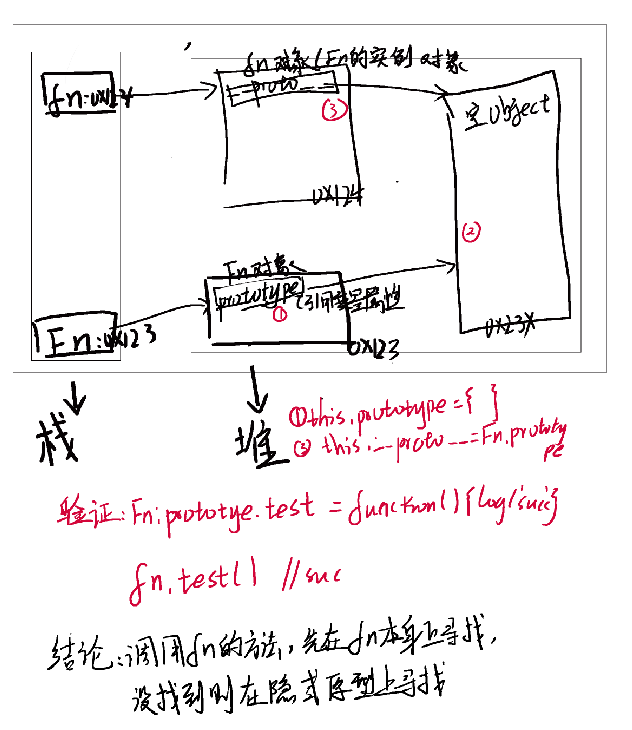 fn对象(Fn的实例对象
fn:0x124
__proto__
③
空Object
0x124
②
Fn对象
prototype
①
(引用变量属性
0x23X
Fn:0x123
0x123
栈
堆
①this.prototype={ }
③ this.__proto__=Fn.prototy
pe
验证:Fn.prototye.test = function(){log('suc'}
fn.test() //suc
结论:调用fn的方法,先在fn本身上寻找,
没找到则在隐式原型上寻找